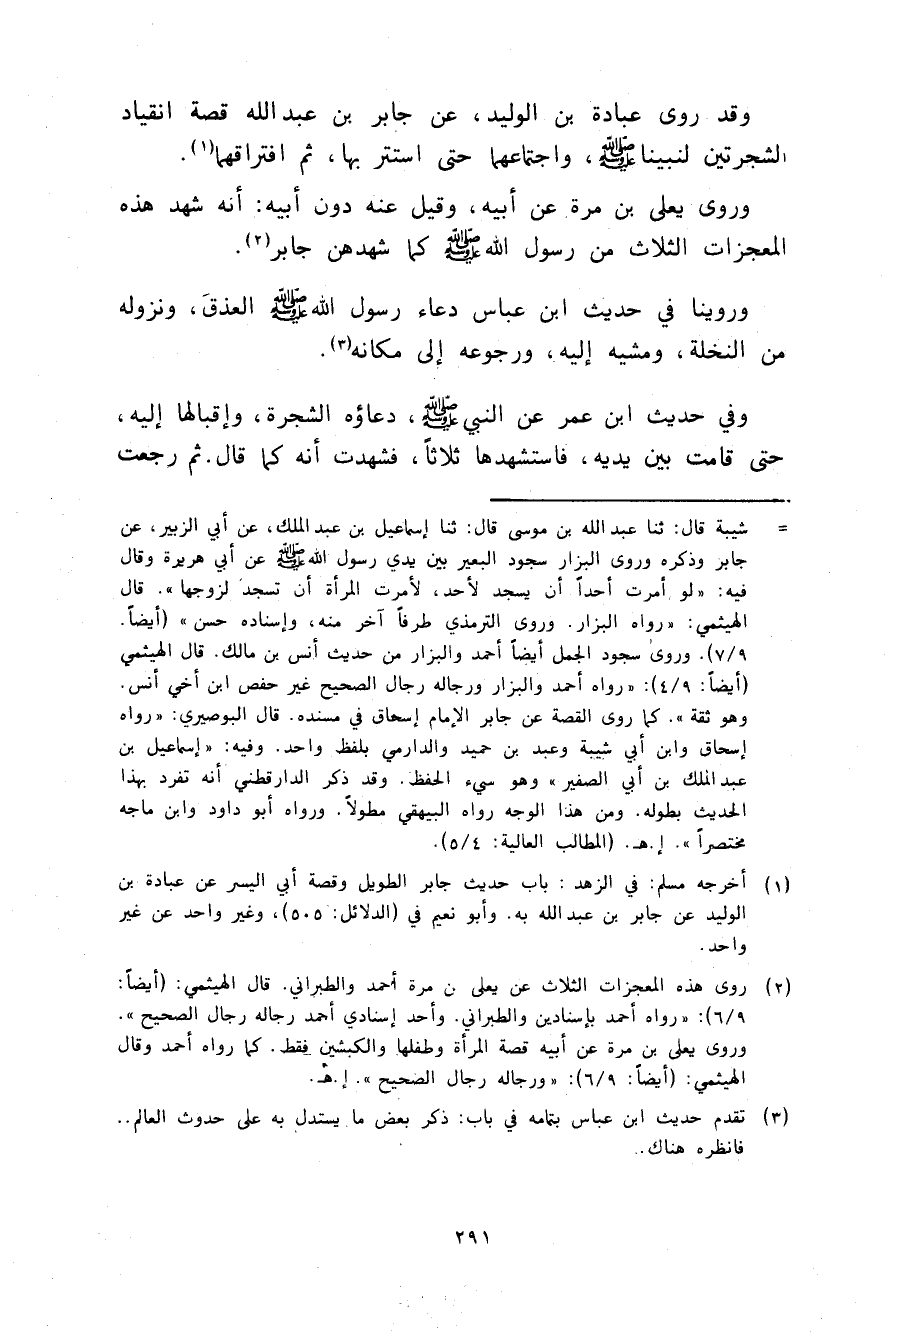 وقد روى عبادة بن الوليد، عن جابر بن عبدالله قصة انقياد
الشجرتين لنبينا ﷺ، واجتماعهما حتى استتر بهما، ثم افتراقهما(١).
وروى يعلى بن مرة عن أبيه، وقيل عنه دون أبيه: أنه شهد هذه
المعجزات الثلاث من رسول الله ﷺ كما شهدهن جابر(٢).
وروينا في حديث ابن عباس دعاء رسول الله ﷺ العذقَ، ونزوله
من النخلة، ومشيه إليه، ورجوعه إلى مكانه(٣).
وفي حديث ابن عمر عن النبي ﷺ، دعاؤه الشجرة، وإقبالها إليه،
حتى قامت بين يديه، فاستشهدها ثلاثاً، فشهدت أنه كما قال. ثم رجعت
= شيبة قال: ثنا عبدالله بن موسى قال: ثنا إسماعيل بن عبدالملك، عن أبي الزبير، عن
جابر وذكره وروى البزار سجود البعير بين يدي رسول الله ﷺ عن أبي هريرة وقال
فيه: «لو أمرت أحداً أن يسجد لأحد، لأمرت المرأة أن تسجد لزوجها». قال
الهيثمي: «رواه البزار. وروى الترمذي طرفاً آخر منه، وإسناده حسن» (أيضاً.
٧/٩). وروى سجود الجمل أيضاً أحمد والبزار من حديث أنس بن مالك. قال الهيثمي
(أيضاً: ٤/٩): «رواه أحمد والبزار ورجاله رجال الصحيح غير حفص ابن أخي أنس.
وهو ثقة». كما روى القصة عن جابر الإمام إسحاق في مسنده. قال البوصيري: «رواه
إسحاق وابن أبي شيبة وعبد بن حميد والدارمي بلفظ واحد. وفيه: «إسماعيل بن
عبدالملك بن أبي الصفير» وهو سيء الحفظ. وقد ذكر الدارقطني أنه تفرد بهذا
الحديث بطوله. ومن هذا الوجه رواه البيهقي مطولاً. ورواه أبو داود وابن ماجه
مختصراً». إ.هـ. (المطالب العالية: ٥/٤).
(١) أخرجه مسلم: في الزهد: باب حديث جابر الطويل وقصة أبي اليسر عن عبادة بن
الوليد عن جابر بن عبدالله به. وأبو نعيم في (الدلائل: ٥٠٥)، وغير واحد عن غير
واحد.
(٢) روى هذه المعجزات الثلاث عن يعلى ن مرة أحمد والطبراني. قال الهيثمي: (أيضاً:
٦/٩): «رواه أحمد بإسنادين والطبراني. وأحد إسنادي أحمد رجاله رجال الصحيح».
وروى يعلى بن مرة عن أبيه قصة المرأة وطفلها والكبشين فقط. كما رواه أحمد وقال
الهيثمي: (أيضاً: ٦/٩): «ورجاله رجال الصحيح». إ.هـ.
(٣) تقدم حديث ابن عباس بتمامه في باب: ذكر بعض ما يستدل به على حدوث العالم..
فانظره هناك..
٢٩١